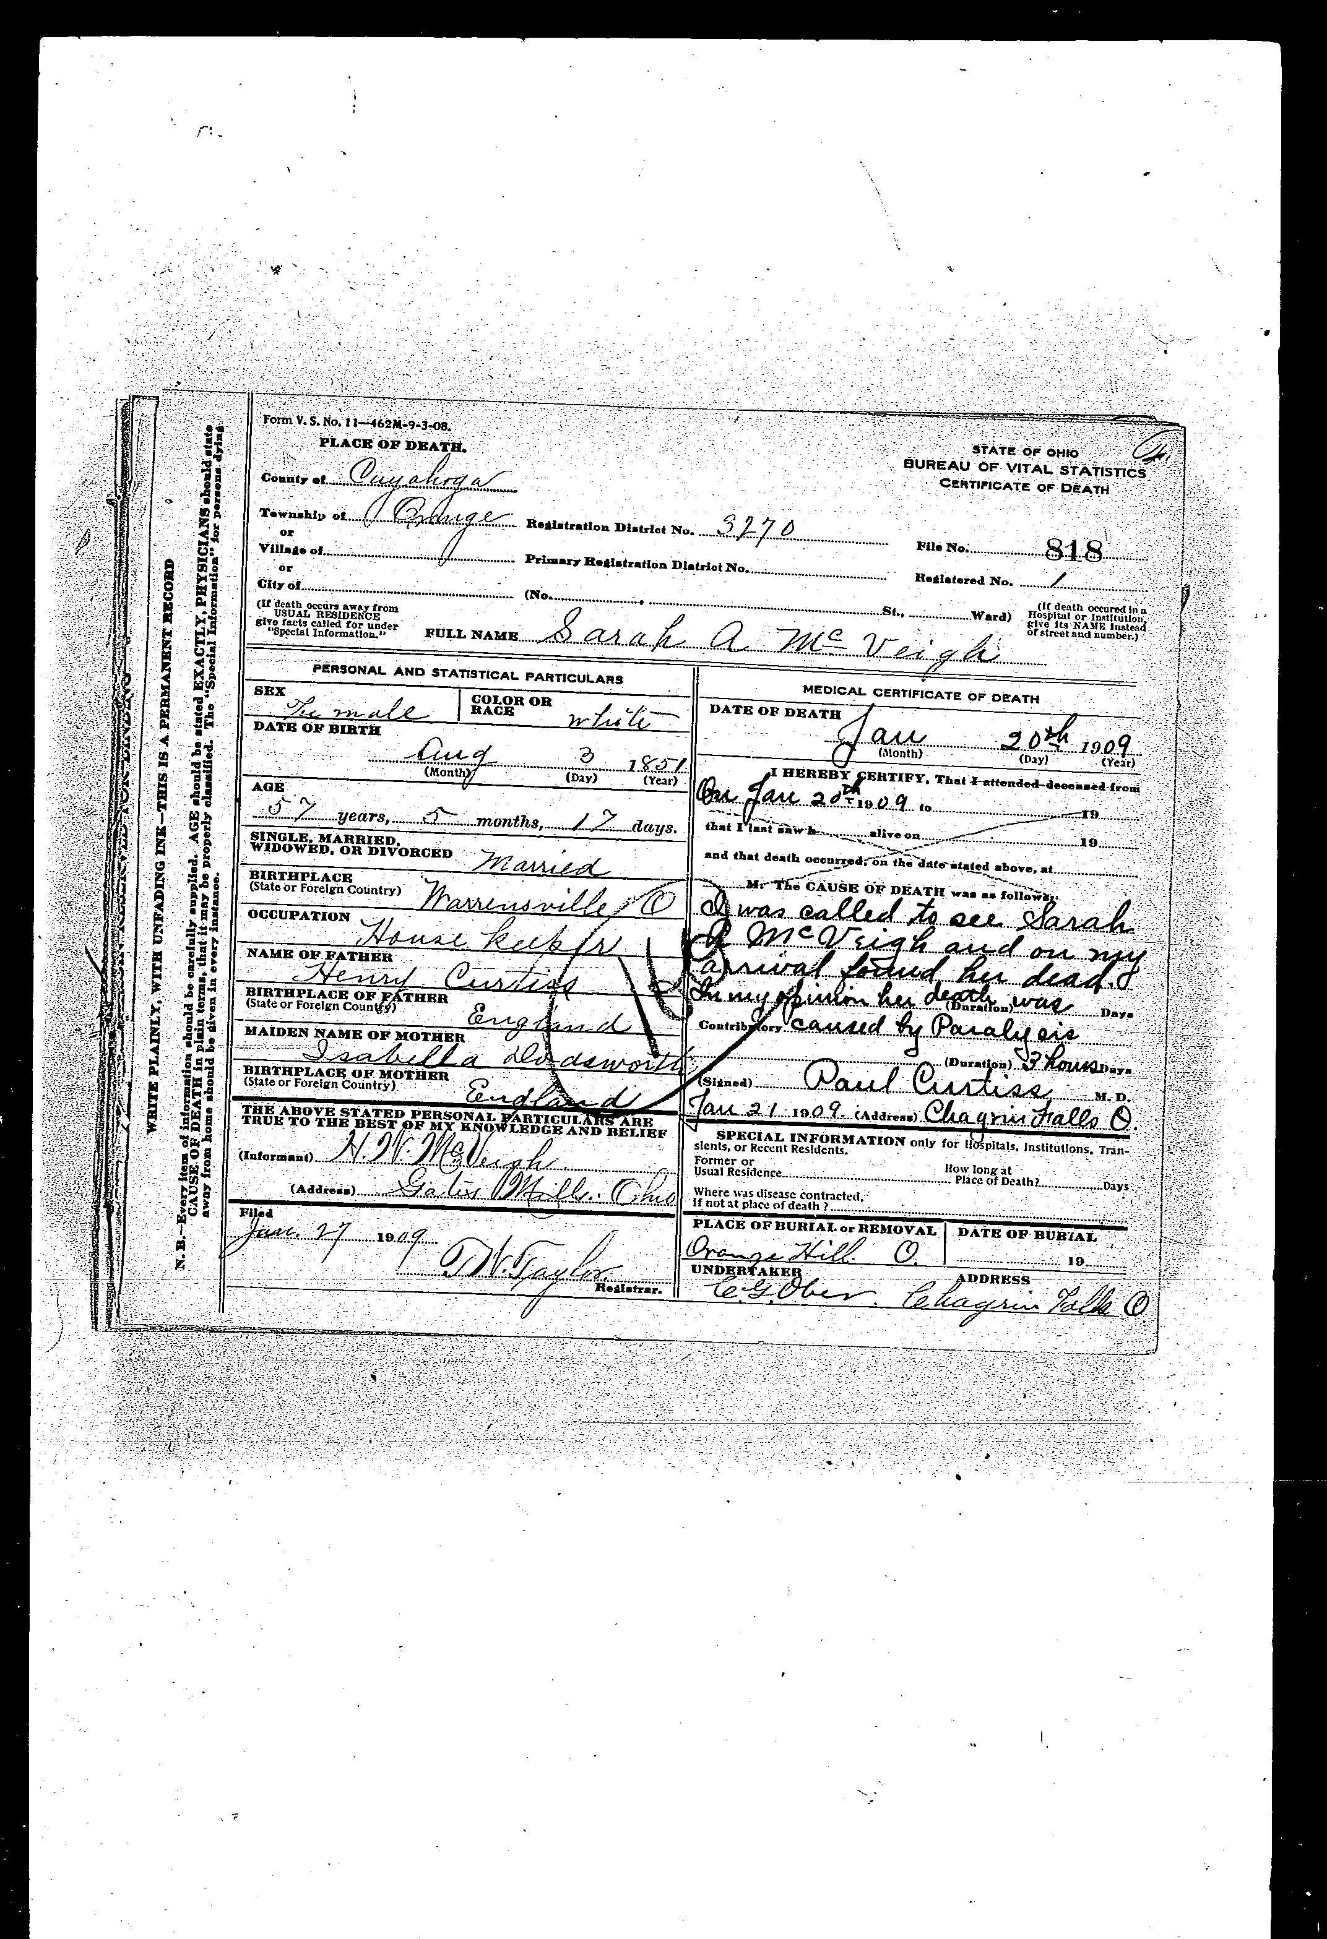 Form V. S. No. 11—462M-9-3-08.
PLACE OF DEATH.
STATE OF OHIO
BUREAU OF VITAL STATISTICS
CERTIFICATE OF DEATH
County of Cuyahoga
Township of Orange Registration District No. 3270 File No. 818
or
Village of Primary Registration District No. Registered No. 1
or
City of (No. , St., Ward)
(If death occurs away from USUAL RESIDENCE give facts called for under "Special Information.")
(If death occured in a Hospital or Institution, give its NAME instead of street and number.)
FULL NAME Sarah A Mc Veigh
PERSONAL AND STATISTICAL PARTICULARS
SEX Female
COLOR OR RACE white
DATE OF BIRTH
Aug 3 1851
(Month) (Day) (Year)
AGE
57 years, 5 months, 17 days.
SINGLE, MARRIED,
WIDOWED, OR DIVORCED Married
BIRTHPLACE
(State or Foreign Country) Warrensville O
OCCUPATION
House keeper
NAME OF FATHER
Henry Curtiss
BIRTHPLACE OF FATHER
(State or Foreign Country) England
MAIDEN NAME OF MOTHER
Isabella Dodsworth
BIRTHPLACE OF MOTHER
(State or Foreign Country) England
THE ABOVE STATED PERSONAL PARTICULARS ARE
TRUE TO THE BEST OF MY KNOWLEDGE AND BELIEF
(Informant) H. W. McVeigh
(Address) Gates Mills. Ohio
Filed
Jan. 27 1909
Taylor
Registrar.
MEDICAL CERTIFICATE OF DEATH
DATE OF DEATH
Jan 20th 1909
(Month) (Day) (Year)
I HEREBY CERTIFY, That I attended deceased from
On Jan 20th 1909 to 19
that I last saw h alive on 19
and that death occurred, on the date stated above, at
M. The CAUSE OF DEATH was as follows:
I was called to see Sarah
A McVeigh and on my
arrival found her dead.
In my opinion her death was (Duration) Days
Contributory caused by Paralysis
(Duration) 3 hours Days
(Signed) Paul Curtiss, M. D.
Jan 21 1909. (Address) Chagrin Falls O.
SPECIAL INFORMATION only for Hospitals, Institutions, Tran-
sients, or Recent Residents.
Former or
Usual Residence
How long at
Place of Death? Days
Where was disease contracted,
If not at place of death?
PLACE OF BURIAL or REMOVAL
Orange Hill O.
DATE OF BURIAL
19
UNDERTAKER
C. G. Ober.
ADDRESS
Chagrin Falls O
WRITE PLAINLY, WITH UNFADING INK—THIS IS A PERMANENT RECORD
N. B.—Every item of information should be carefully supplied. AGE should be stated EXACTLY, PHYSICIANS should state
CAUSE OF DEATH in plain terms, that it may be properly classified. The "Special Information" for persons dying
away from home should be given in every instance.